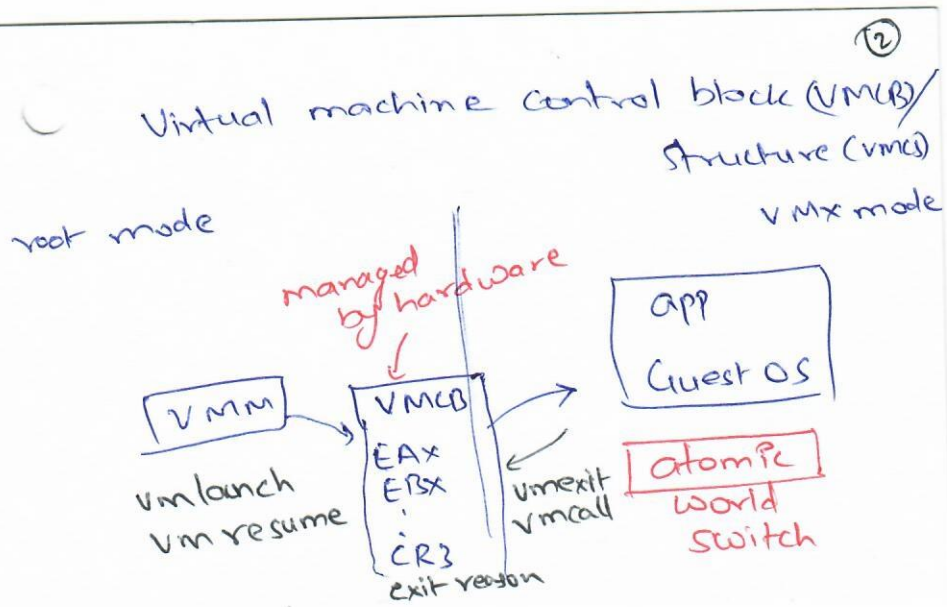 2
Virtual machine control block (VMCB)/
structure (vmcs)
root mode
VMX mode
managed
by hardware
app
Guest OS
VMM
VMCB
EAX
EBX
:
CR3
exit reason
vmlaunch
vm resume
vmexit
vmcall
atomic
world
switch